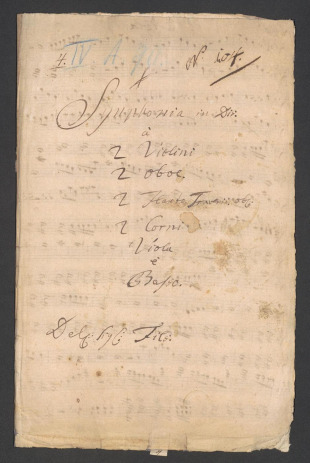 4. IV. A. No. 104.
Symphonia in Dis.
à
2 Violini
2 Oboe.
2 Flauti Travers: obl:
2 Corni
Viola
è
Basso.
Del Sig: Filz.